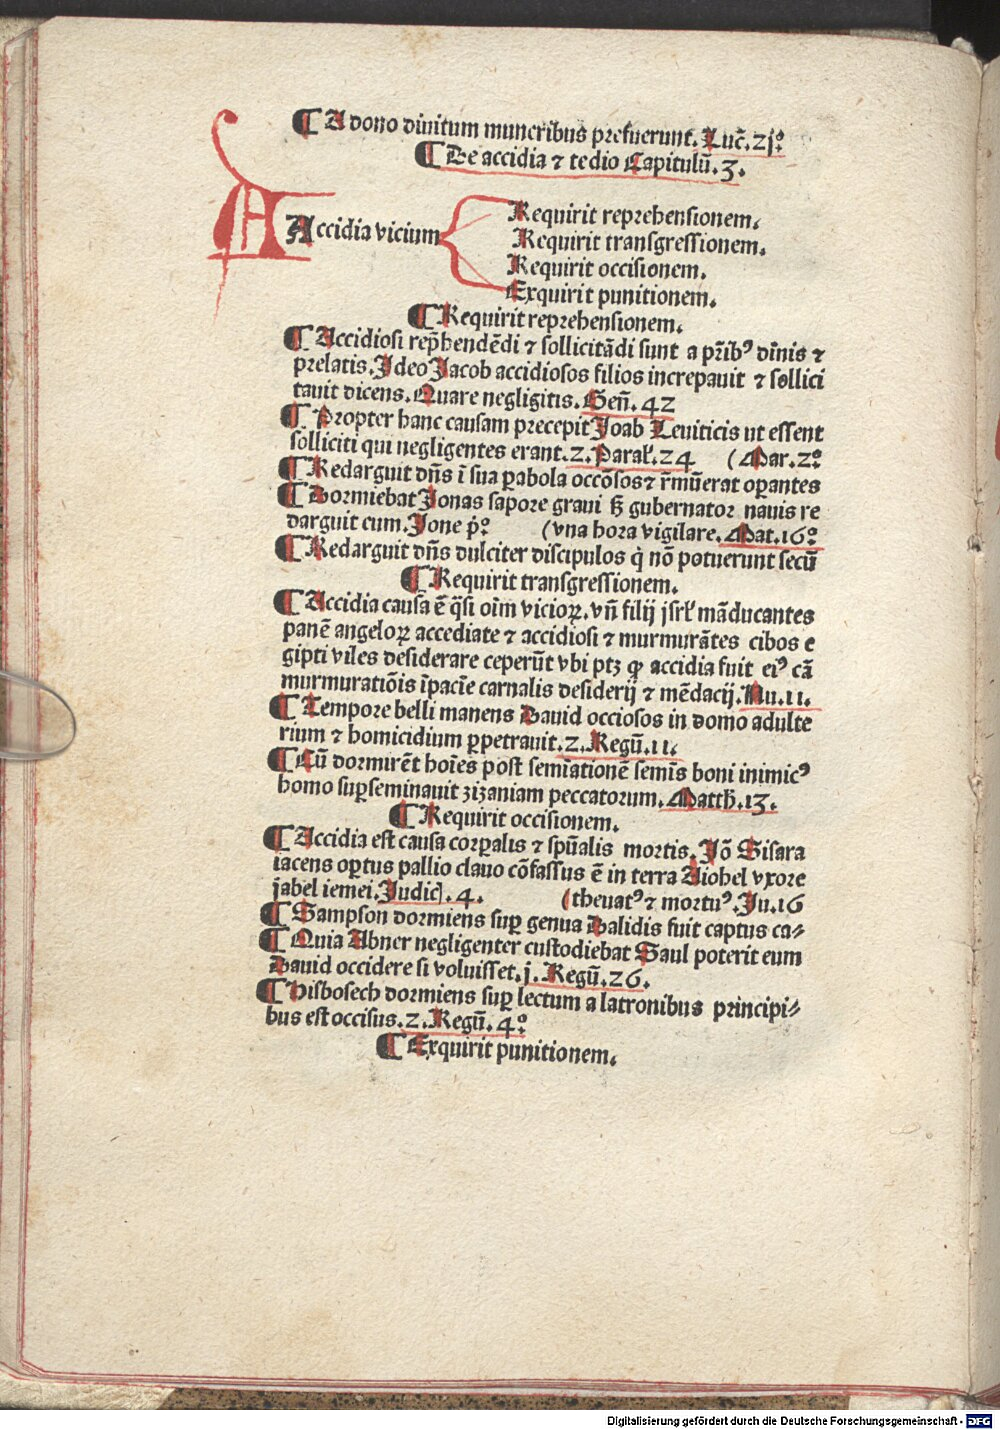 ¶ A dono diuitum muneribus prefuerunt. Luc̄. 21°
¶ De accidia ⁊ tedio Capitulū. 3.
A
Accidia vicium
Requirit reprehensionem.
Requirit transgressionem.
Requirit occisionem.
Exquirit punitionem.
¶ Requirit reprehensionem.
¶ Accidiosi rep̄hendēdi ⁊ sollicitādi sunt a pr̄ibꝰ diuīs ⁊
prelatis. Ideo Jacob accidiosos filios increpauit ⁊ sollici
tauit dicens. Quare negligitis. Geñ. 42
¶ Propter hanc causam precepit Joab Leuiticis ut essent
solliciti qui negligentes erant. 2. Paral̓. 24 (Mar. 2°
¶ Redarguit dn̄s ī sua ꝑabola occōsos ⁊ r̄mūerat oꝑantes
¶ Dormiebat Jonas sapore graui ꝫ gubernator nauis re
darguit eum. Jone p̄° (vna hora vigilare. Mat. 16°
¶ Redarguit dn̄s dulciter discipulos q̓ nō potuerunt secū
¶ Requirit transgressionem.
¶ Accidia causa ē q̄si oīm vicioꝝ. vn̄ filij jsrl̓ māducantes
panē angeloꝝ accediate ⁊ accidiosi ⁊ murmurātes cibos e
gipti viles desiderare ceperūt vbi ptꝫ ꝙ accidia fuit eiꝰ cā
murmuratiōis īpacīe carnalis desiderij ⁊ mēdacij. Nu. 11.
¶ Tempore belli manens Dauid occiosos in domo adulte
rium ⁊ homicidium ꝑpetrauit. 2. Regū. 11.
¶ Cū dormirēt hoīes post semīationē semīs boni inimicꝰ
homo suꝑseminauit zizaniam peccatorum. Matth̄. 13.
¶ Requirit occisionem.
¶ Accidia est causa corꝑalis ⁊ spūalis mortis. Jō Sisara
iacens oꝑtus pallio clauo cōfassus ē in terra Aiohel vxore
jabel iemei. Judic̄. 4. (theuatꝰ ⁊ mortuꝰ. Ju. 16
¶ Sampson dormiens suꝑ genua Dalidis fuit captus ca⸗
¶ Quia Abner negligenter custodiebat Saul poterit eum
Dauid occidere si voluisset. j. Regū. 26.
¶ Hisbosech dormiens suꝑ lectum a latronibus principi⸗
bus est occisus. 2. Regū. 4°
¶ Exquirit punitionem.
Digitalisierung gefördert durch die Deutsche Forschungsgemeinschaft - DFG